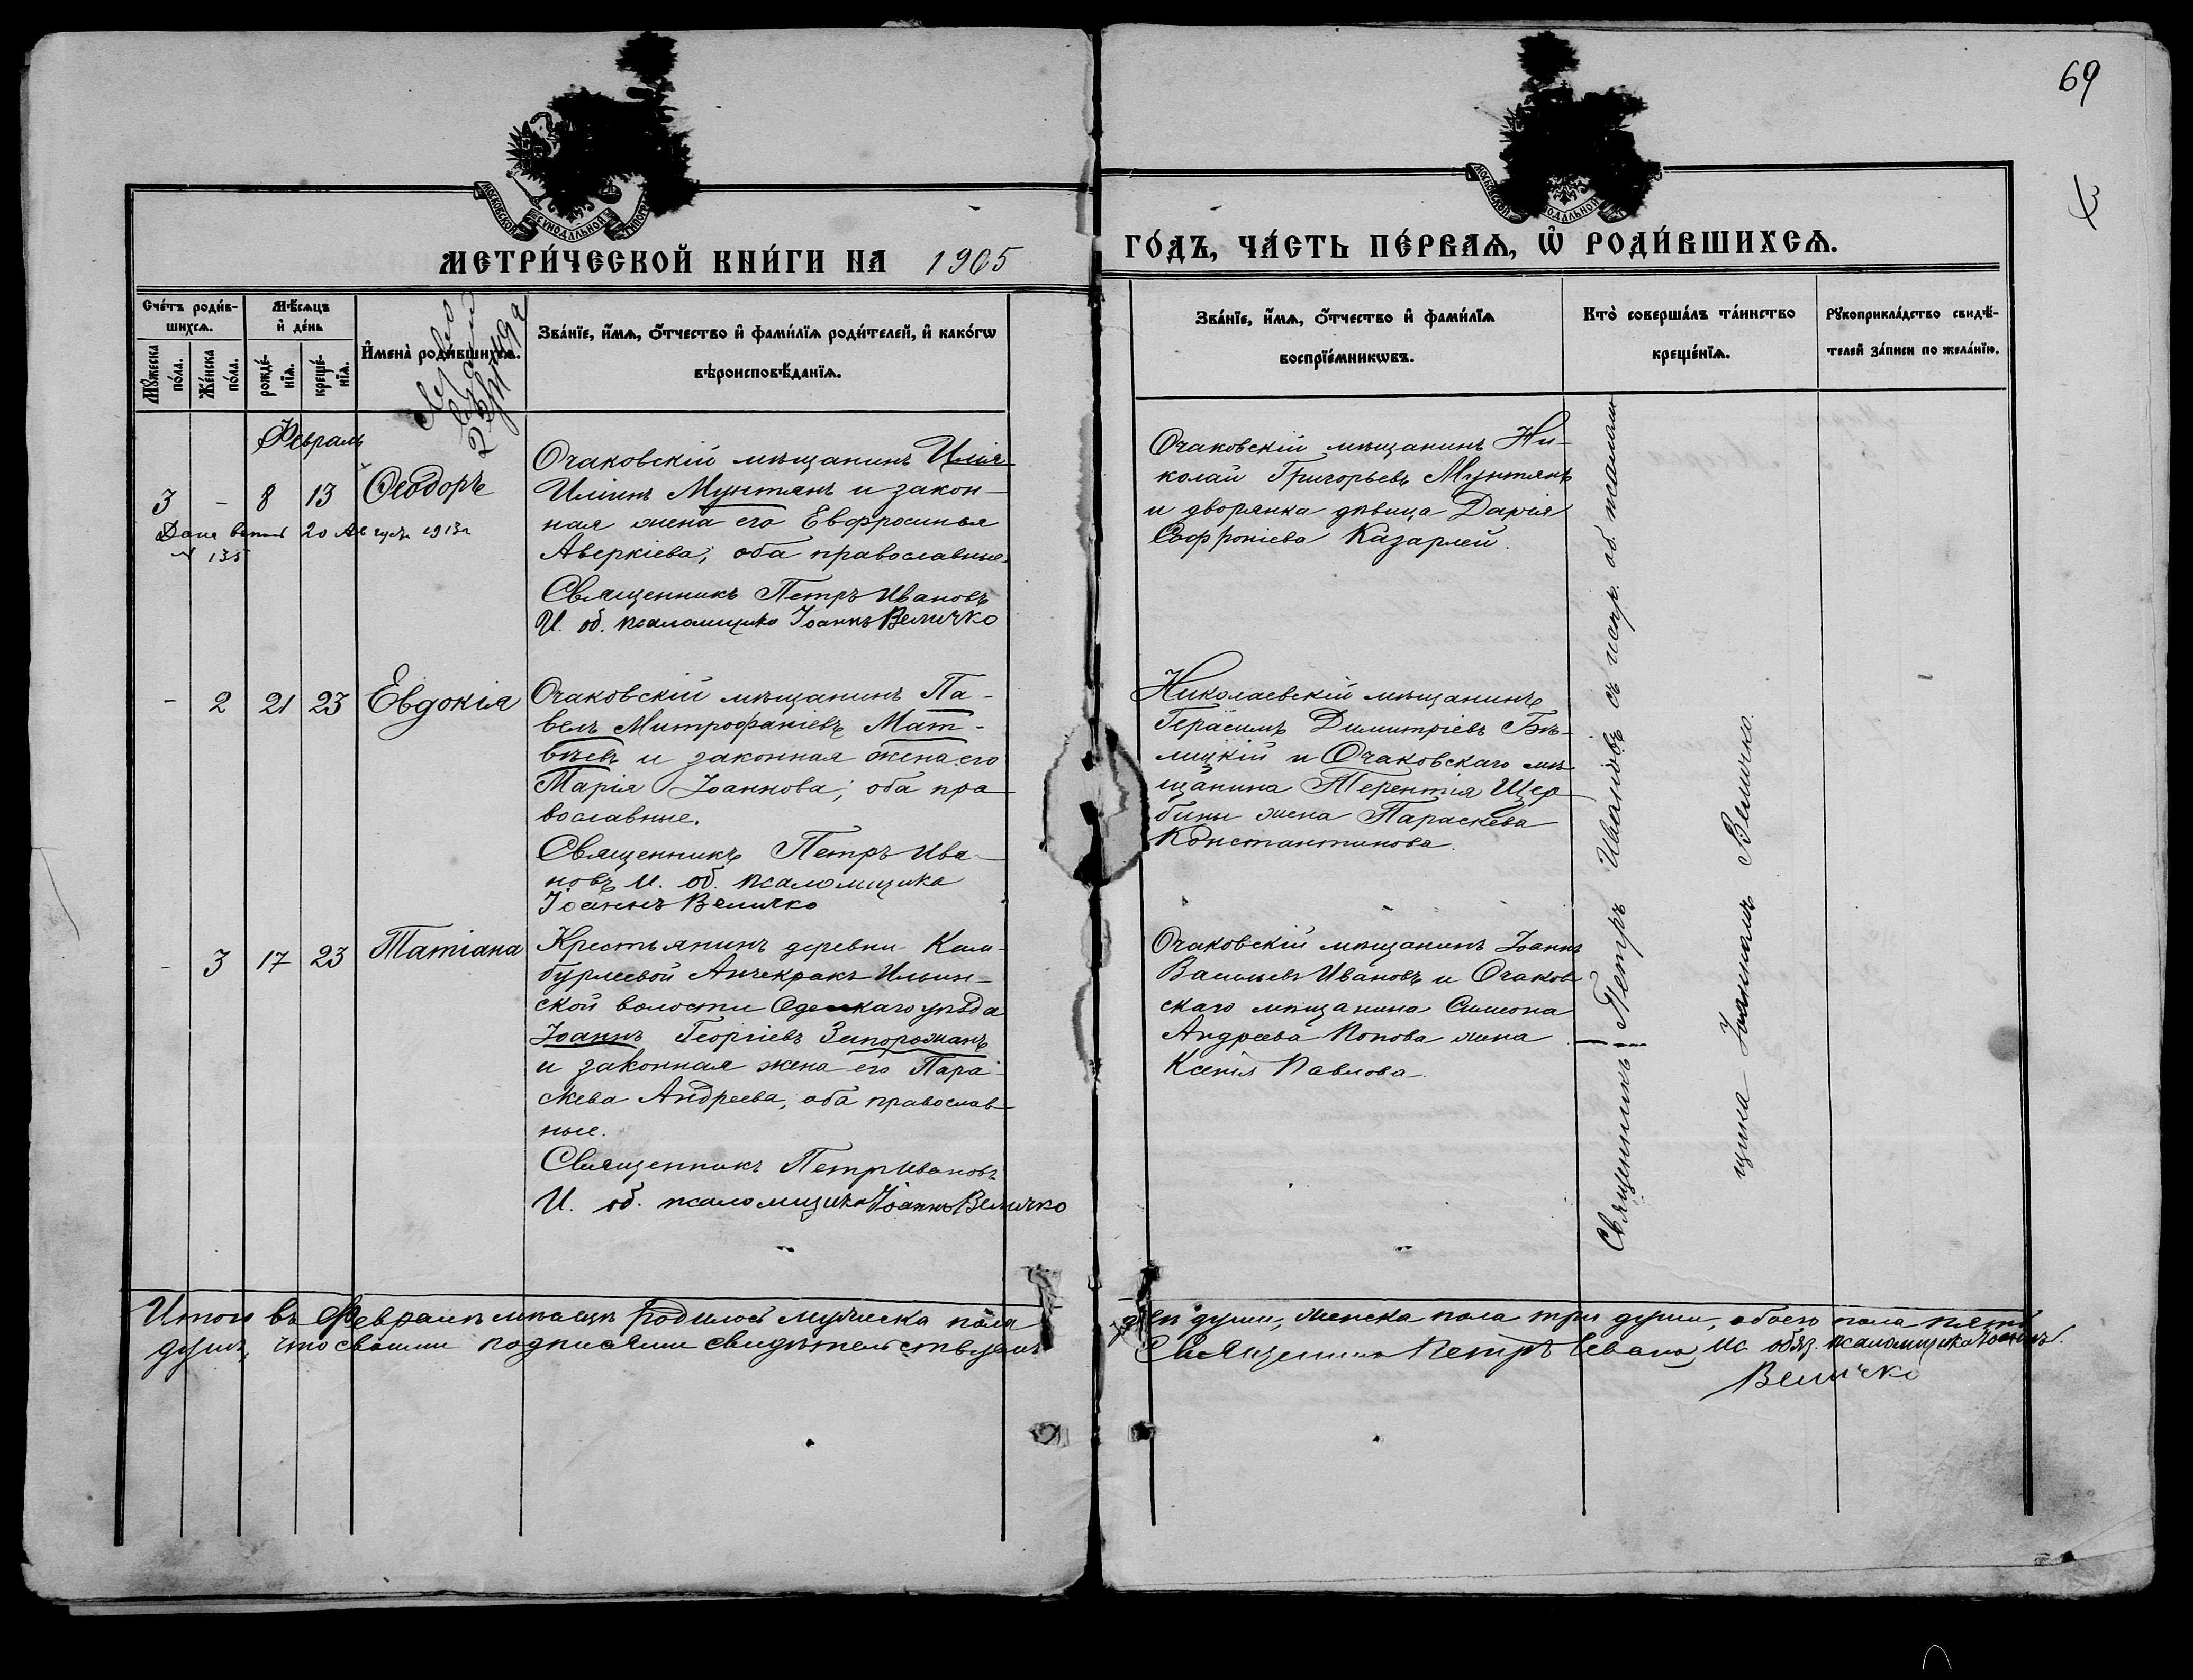 69
МЕТРИ́ЧЕСКОЙ КНИ́ГИ НА 1905
ГО́ДЪ, ЧА́СТЬ ПЕ́РВАѦ, Ѡ҆ РОДИ́ВШИХСѦ.
Сче́тъ роди́в-
шихсѧ.
Мꙋ́жеска по́ла.
Же́нска по́ла.
Мѣ́сѧцъ
и҆ де́нь
рожде́-
нїѧ.
креще́-
нїѧ.
И҆мена̀ роди́вшихсѧ.
Зва́нїе, и҆́мѧ, ѻ҆́тчество и҆ фами́лїѧ роди́телей, и҆ како́гѡ
вѣроисповѣ́данїѧ.
Зва́нїе, и҆́мѧ, ѻ҆́тчество и҆ фами́лїѧ
воспрїе́мникѡвъ.
Кто̀ соверша́лъ та́инство
креще́нїѧ.
Рꙋкоприкла́дство свидѣ́-
телей за́писи по жела́нїю.
Февраль
3 - 8 13 Ѳеодоръ
20 Август 1913г
№ 135
Очаковскій мѣщанинъ Илія
Иліинъ Мунтянъ и закон-
ная жена его Евфросинья
Аверкіева; оба православные.
Священникъ Петръ Ивановъ
И. об. псаломщика Іоаннъ Величко
Очаковскій мѣщанинъ Ни-
колай Григорьевъ Мунтянъ
и дворянка дѣвица Дарія
Софроніева Казарлей.
- 2 21 23 Евдокія
Очаковскій мѣщанинъ Па-
велъ Митрофаніевъ Мат-
вѣевъ и законная жена его
Марія Іоаннова; оба пра-
вославные.
Священникъ Петръ Ива-
новъ И. об. псаломщика
Іоаннъ Величко
Николаевскій мѣщанинъ
Герасимъ Димитріевъ Бѣ-
лицкій и Очаковскаго мѣ-
щанина Терентія Щер-
бины жена Параскева
Константинова.
- 3 17 23 Татіана
Крестьянинъ деревни Кам-
бурлеевой Анчекракъ Ильин-
ской волости Одесскаго уѣзда
Іоаннъ Георгіевъ Запорожанъ
и законная жена его Пара-
скева Андреева, оба православ-
ные.
Священникъ Петръ Ивановъ
И. об. псаломщика Іоаннъ Величко
Очаковскій мѣщанинъ Іоаннъ
Васильевъ Ивановъ и Очаков-
скаго мѣщанина Симеона
Андреева Попова жена
Ксенія Павлова.
Священникъ Петръ Ивановъ съ испр. об. псалом-
щика Іоанномъ Величко.
Итого въ Февралѣ мѣсяцѣ родилось мужеска пола
двѣ души, женска пола три души, обоего пола пять
душъ, что своими подписями свидѣтельствуемъ
Священникъ Петръ Ивановъ Ис. обяз. псаломщика Іоаннъ
Величко